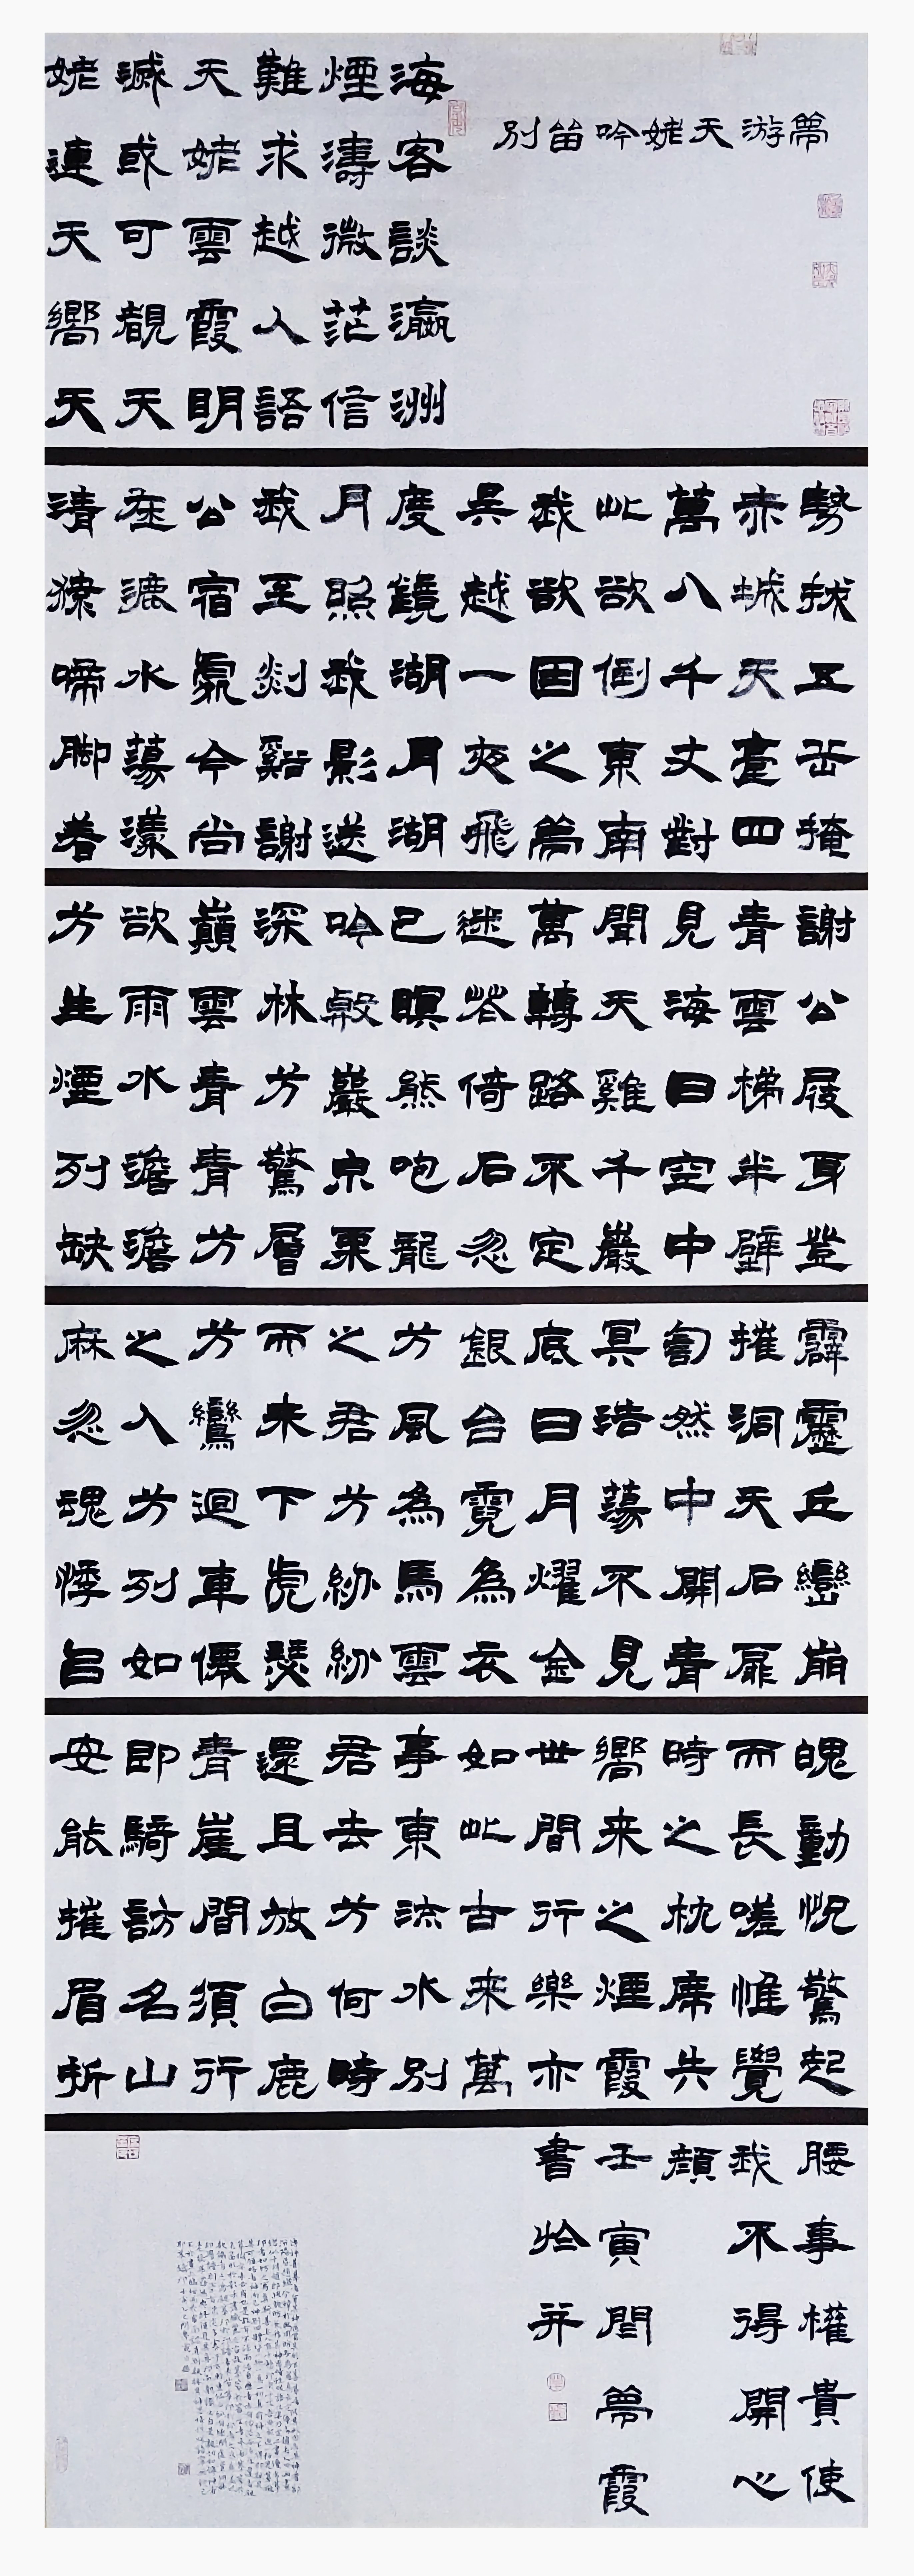 夢游天姥吟留別
海客談瀛洲
煙濤微茫信
難求越人語
天姥雲霞明
滅或可覩天
姥連天嚮天
勢拔五岳掩
赤城天臺四
萬八千丈對
此欲倒東南
我欲因之夢
吳越一夜飛
度鏡湖月湖
月照我影送
我至剡谿謝
公宿處今尚
在淥水蕩漾
清猿啼脚着
謝公屐身登
青雲梯半壁
見海日空中
聞天雞千巖
萬轉路不定
迷花倚石忽
已暝熊咆龍
吟殷巖泉栗
深林兮驚層
巔雲青青兮
欲雨水澹澹
兮生煙列缺
霹靂丘巒崩
摧洞天石扉
訇然中開青
冥浩蕩不見
底日月燿金
銀台霓為衣
兮風為馬雲
之君兮紛紛
而来下虎瑟
兮鸞迴車僊
之人兮列如
麻忽魂悸㠯
魄動怳驚起
而長嗟惟覺
時之枕席失
嚮来之煙霞
世間行樂亦
如此古来萬
事東流水別
君去兮何時
還且放白鹿
青崖間須行
即騎訪名山
安能摧眉折
腰事權貴使
我不得開心
顔
壬寅閏夢霞
書於并